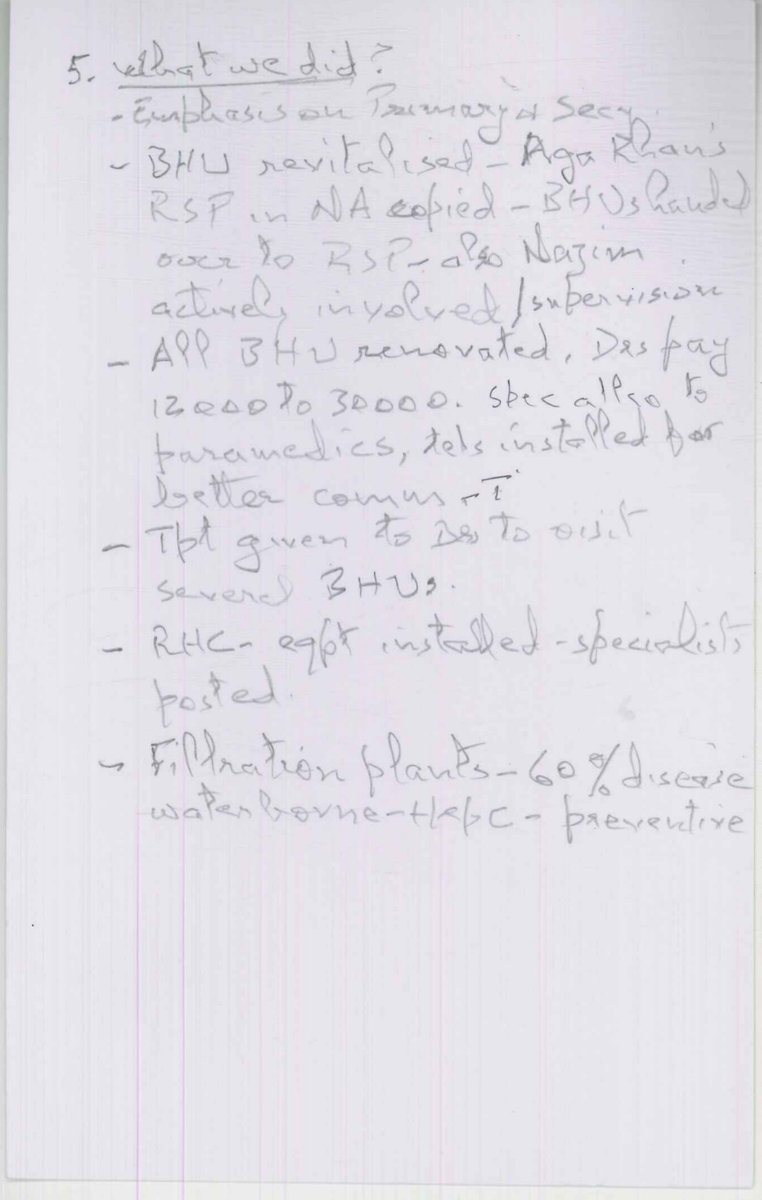 5. What we did?
- Emphasis on Primary & Secy.
- BHU revitalised - Aga Khan's
RSP in NA copied - BHUs handed
over to RSP - also Nazim
actively involved/supervision
- All BHU renovated. Drs pay
12000 to 30000. Spec all
to
paramedics, tels installed for
better comms.
- Tpt given to Drs to visit
several BHUs.
- RHC - eqpt installed - specialists
posted.
- Filtration plants - 60% disease
waterborne - HepC - preventive